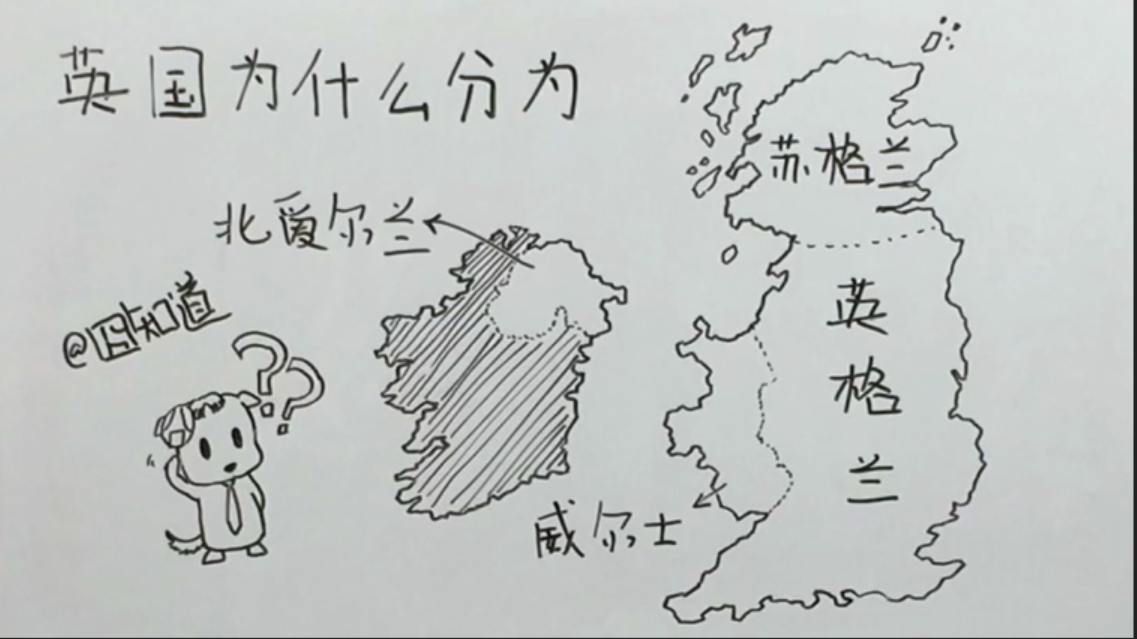 英国为什么分为
苏格兰
北爱尔兰
@囧知道
??
英格兰
威尔士